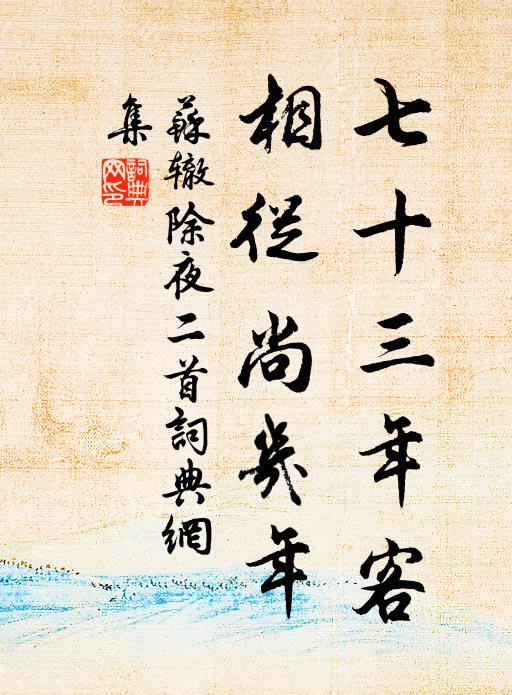 七十三年客
相從尚幾年
蘇辙除夜二首詞典網
集
詞典
网印